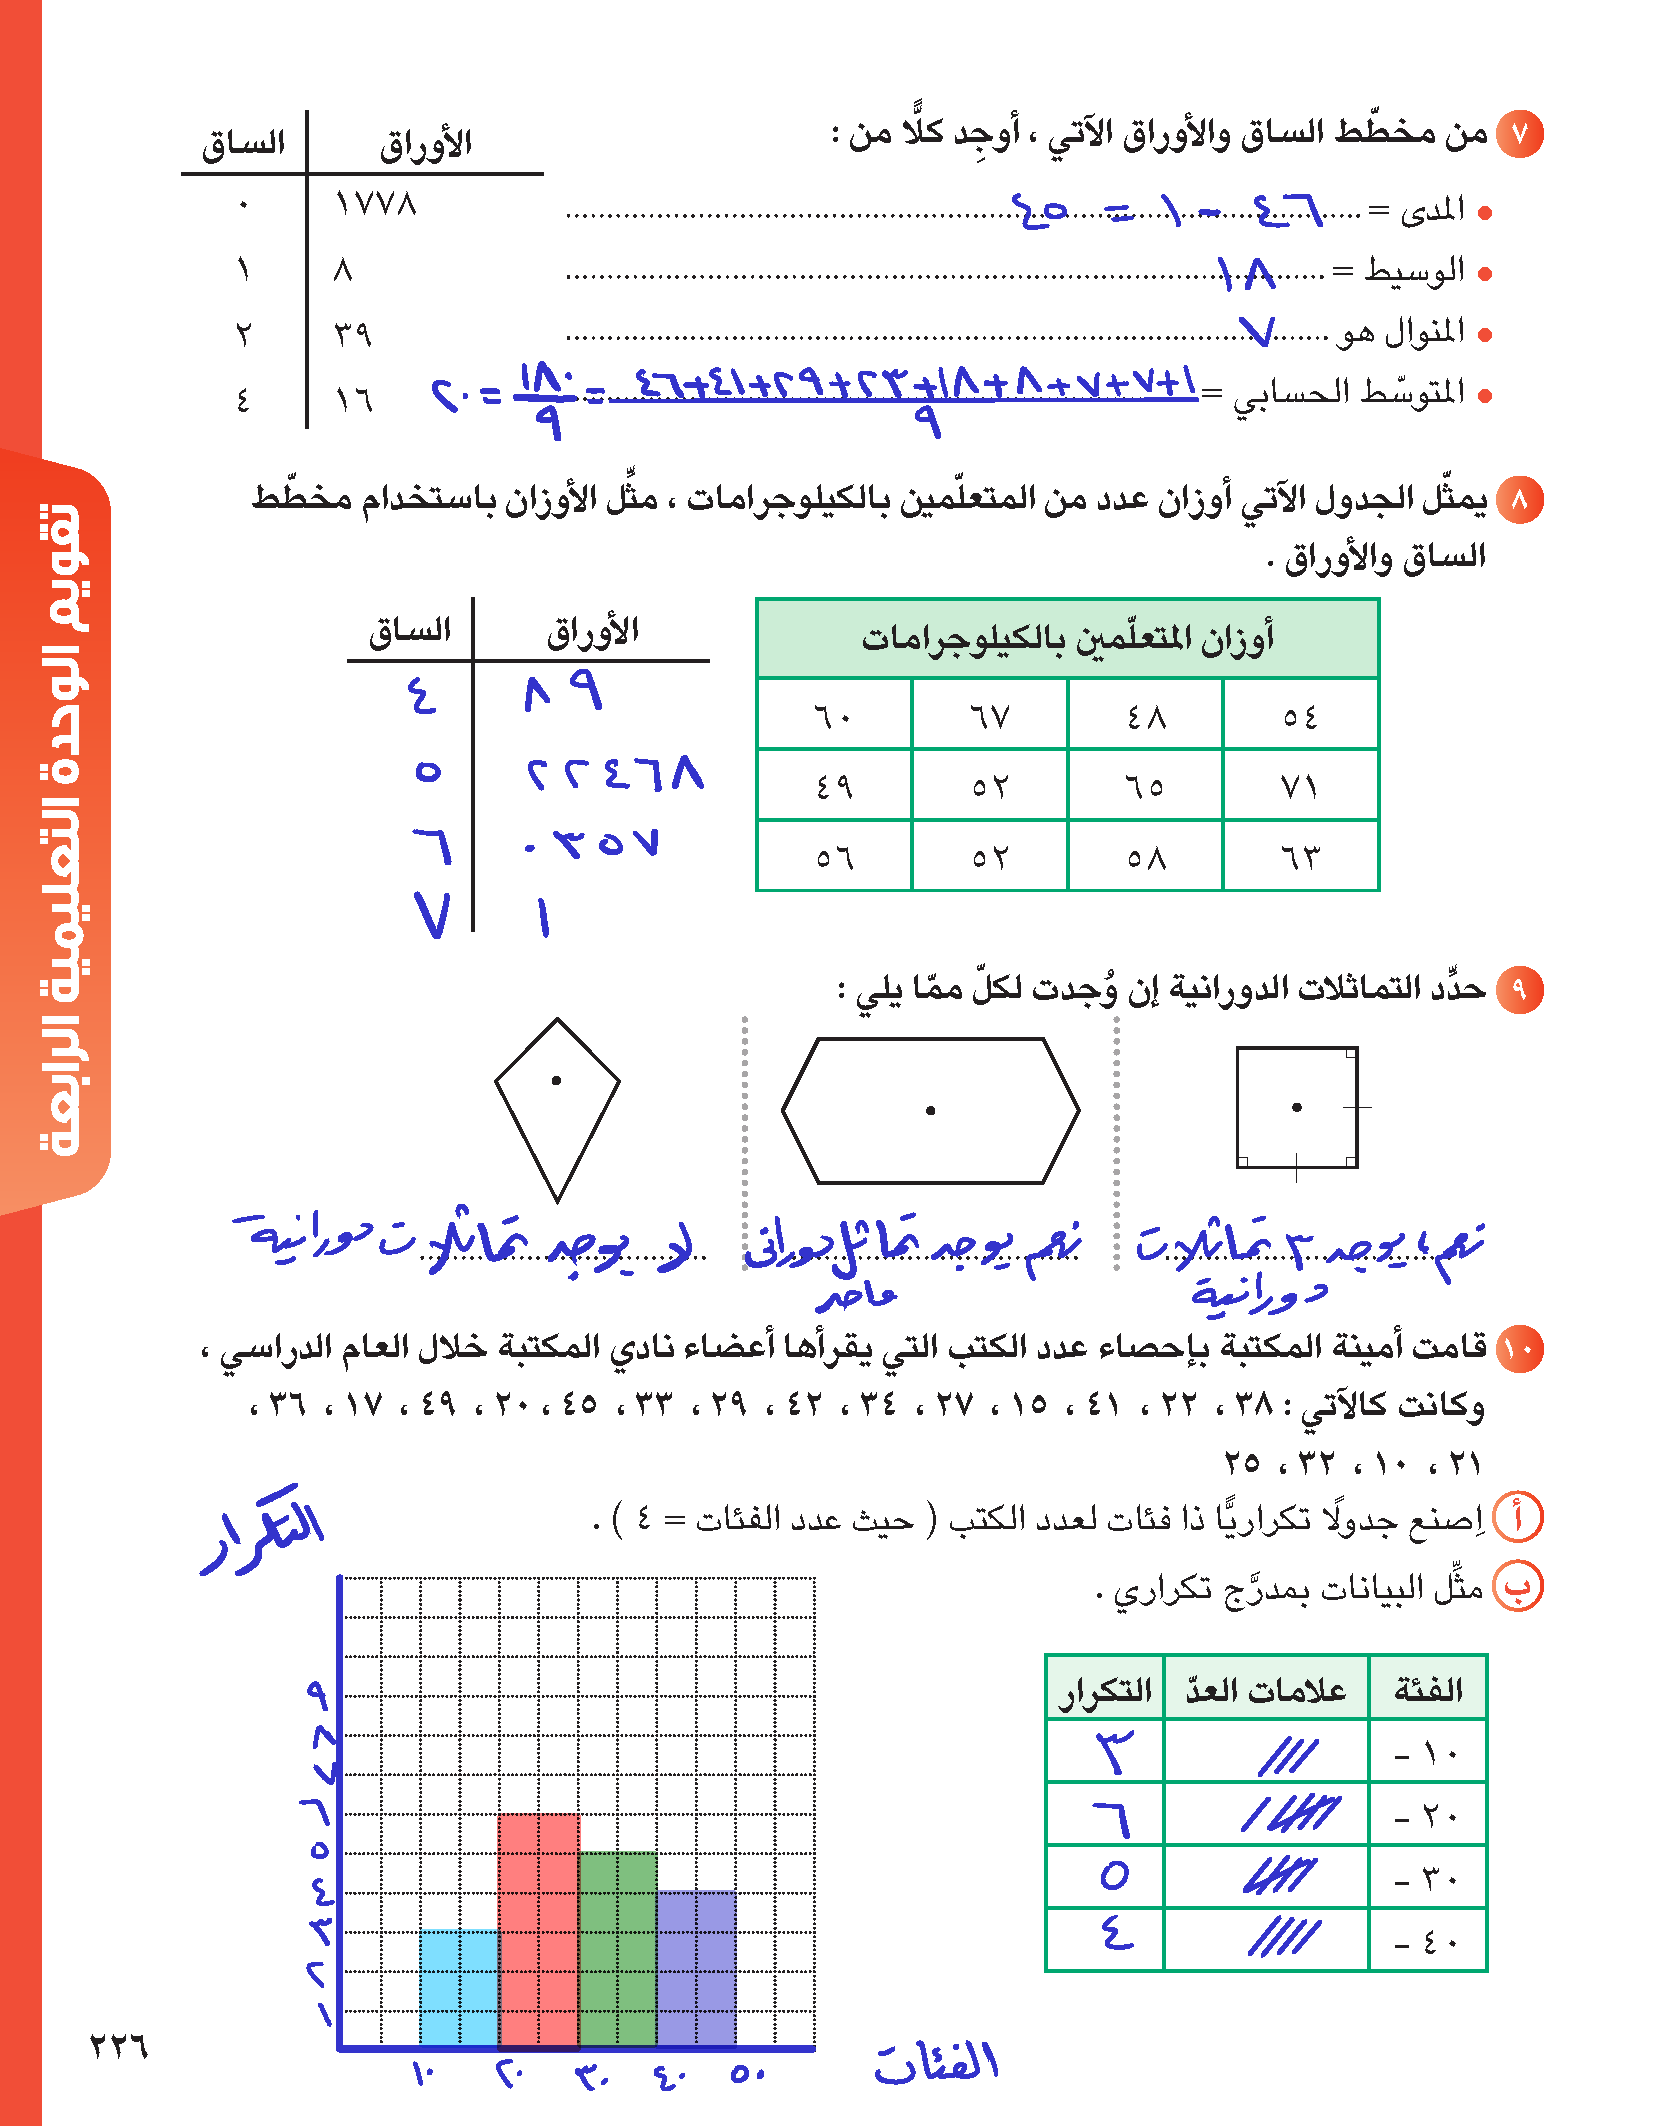 ٧ من مخطّط الساق والأوراق الآتي ، أوجِد كلًّا من :
الساق الأوراق
٠ ١٧٧٨
١ ٨
٢ ٣٩
٤ ١٦
• المدى = ٤٦ - ١ = ٤٥
• الوسيط = ١٨
• المنوال هو ٧
• المتوسّط الحسابي = ١+٧+٧+٨+١٨+٢٣+٢٩+٤١+٤٦ / ٩ = ١٨٠ / ٩ = ٢٠
٨ يمثّل الجدول الآتي أوزان عدد من المتعلّمين بالكيلوجرامات ، مثّل الأوزان باستخدام مخطّط
الساق والأوراق .
أوزان المتعلّمين بالكيلوجرامات
٥٤ ٤٨ ٦٧ ٦٠
٧١ ٦٥ ٥٢ ٤٩
٦٣ ٥٨ ٥٢ ٥٦
الساق الأوراق
٤ ٨ ٩
٥ ٢ ٢ ٤ ٦ ٨
٦ ٠ ٣ ٥ ٧
٧ ١
٩ حدِّد التماثلات الدورانية إن وُجدت لكلّ ممّا يلي :
نعم، يوجد ٣ تماثلات
دورانية
نعم يوجد تماثل دوراني
واحد
لا يوجد تماثلات دورانية
١٠ قامت أمينة المكتبة بإحصاء عدد الكتب التي يقرأها أعضاء نادي المكتبة خلال العام الدراسي ،
وكانت كالآتي : ٣٨ ، ٢٢ ، ٤١ ، ١٥ ، ٢٧ ، ٣٤ ، ٤٢ ، ٢٩ ، ٣٣ ، ٤٥ ، ٢٠ ، ٤٩ ، ١٧ ، ٣٦ ،
٢١ ، ١٠ ، ٣٢ ، ٢٥
أ إصنع جدولًا تكراريًّا ذا فئات لعدد الكتب ( حيث عدد الفئات = ٤ ) .
ب مثِّل البيانات بمدرَّج تكراري .
الفئة علامات العدّ التكرار
١٠ - /// ٣
٢٠ - //// / ٦
٣٠ - //// ٥
٤٠ - //// ٤
التكرار
٩
٨
٧
٦
٥
٤
٣
٢
١
١٠ ٢٠ ٣٠ ٤٠ ٥٠
الفئات
تقويم الوحدة التعليمية الرابعة
٢٢٦